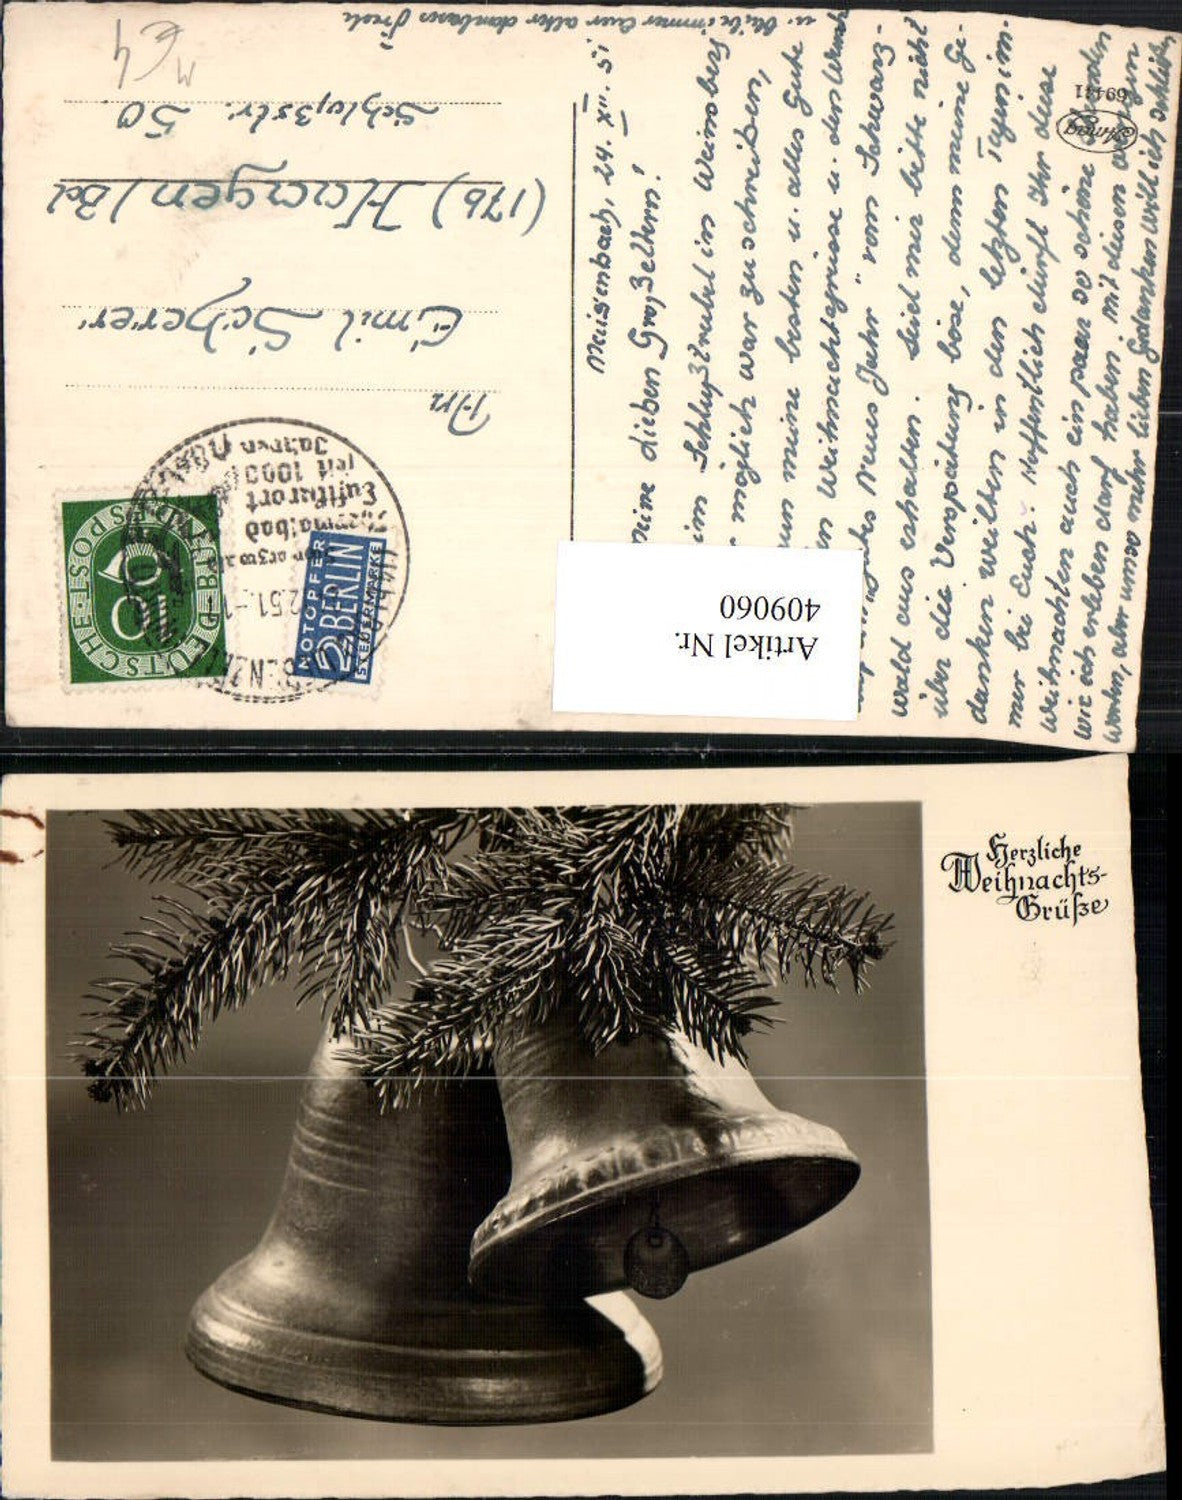 An
Emil Scherer
(17b) Haagen / Bd
Schloßstr. 50
€ 4
DEUTSCHE BUNDESPOST
10
NOTOPFER
2 BERLIN
STEUERMARKE
Luftkurort
seit 1000
Jahren
Artikel Nr.
409060
Amag
69441
24. XII. 51
Meine lieben Großeltern!
im Schloßstrubel in Weinsberg
möglich war zu schreiben,
nun meine besten u. alles Gute
Weihnachtsgrüsse u. den Wunsch
Neues Jahr" vom Schwarz-
wald aus erhalten. Seid mir bitte nicht
über die Verspätung böse, denn meine Ge-
danken weilten in den letzten Tagen im-
mer bei Euch. Hoffentlich dürft Ihr diese
Weihnachten auch ein paar so schöne Stunden
wie ich erleben darf haben. Mit diesen wenigen
Worten, aber umso mehr lieben Gedanken will ich schließen
u. bleibe immer Euer alter dankbarer
Herzliche
Weihnachts-
Grüße